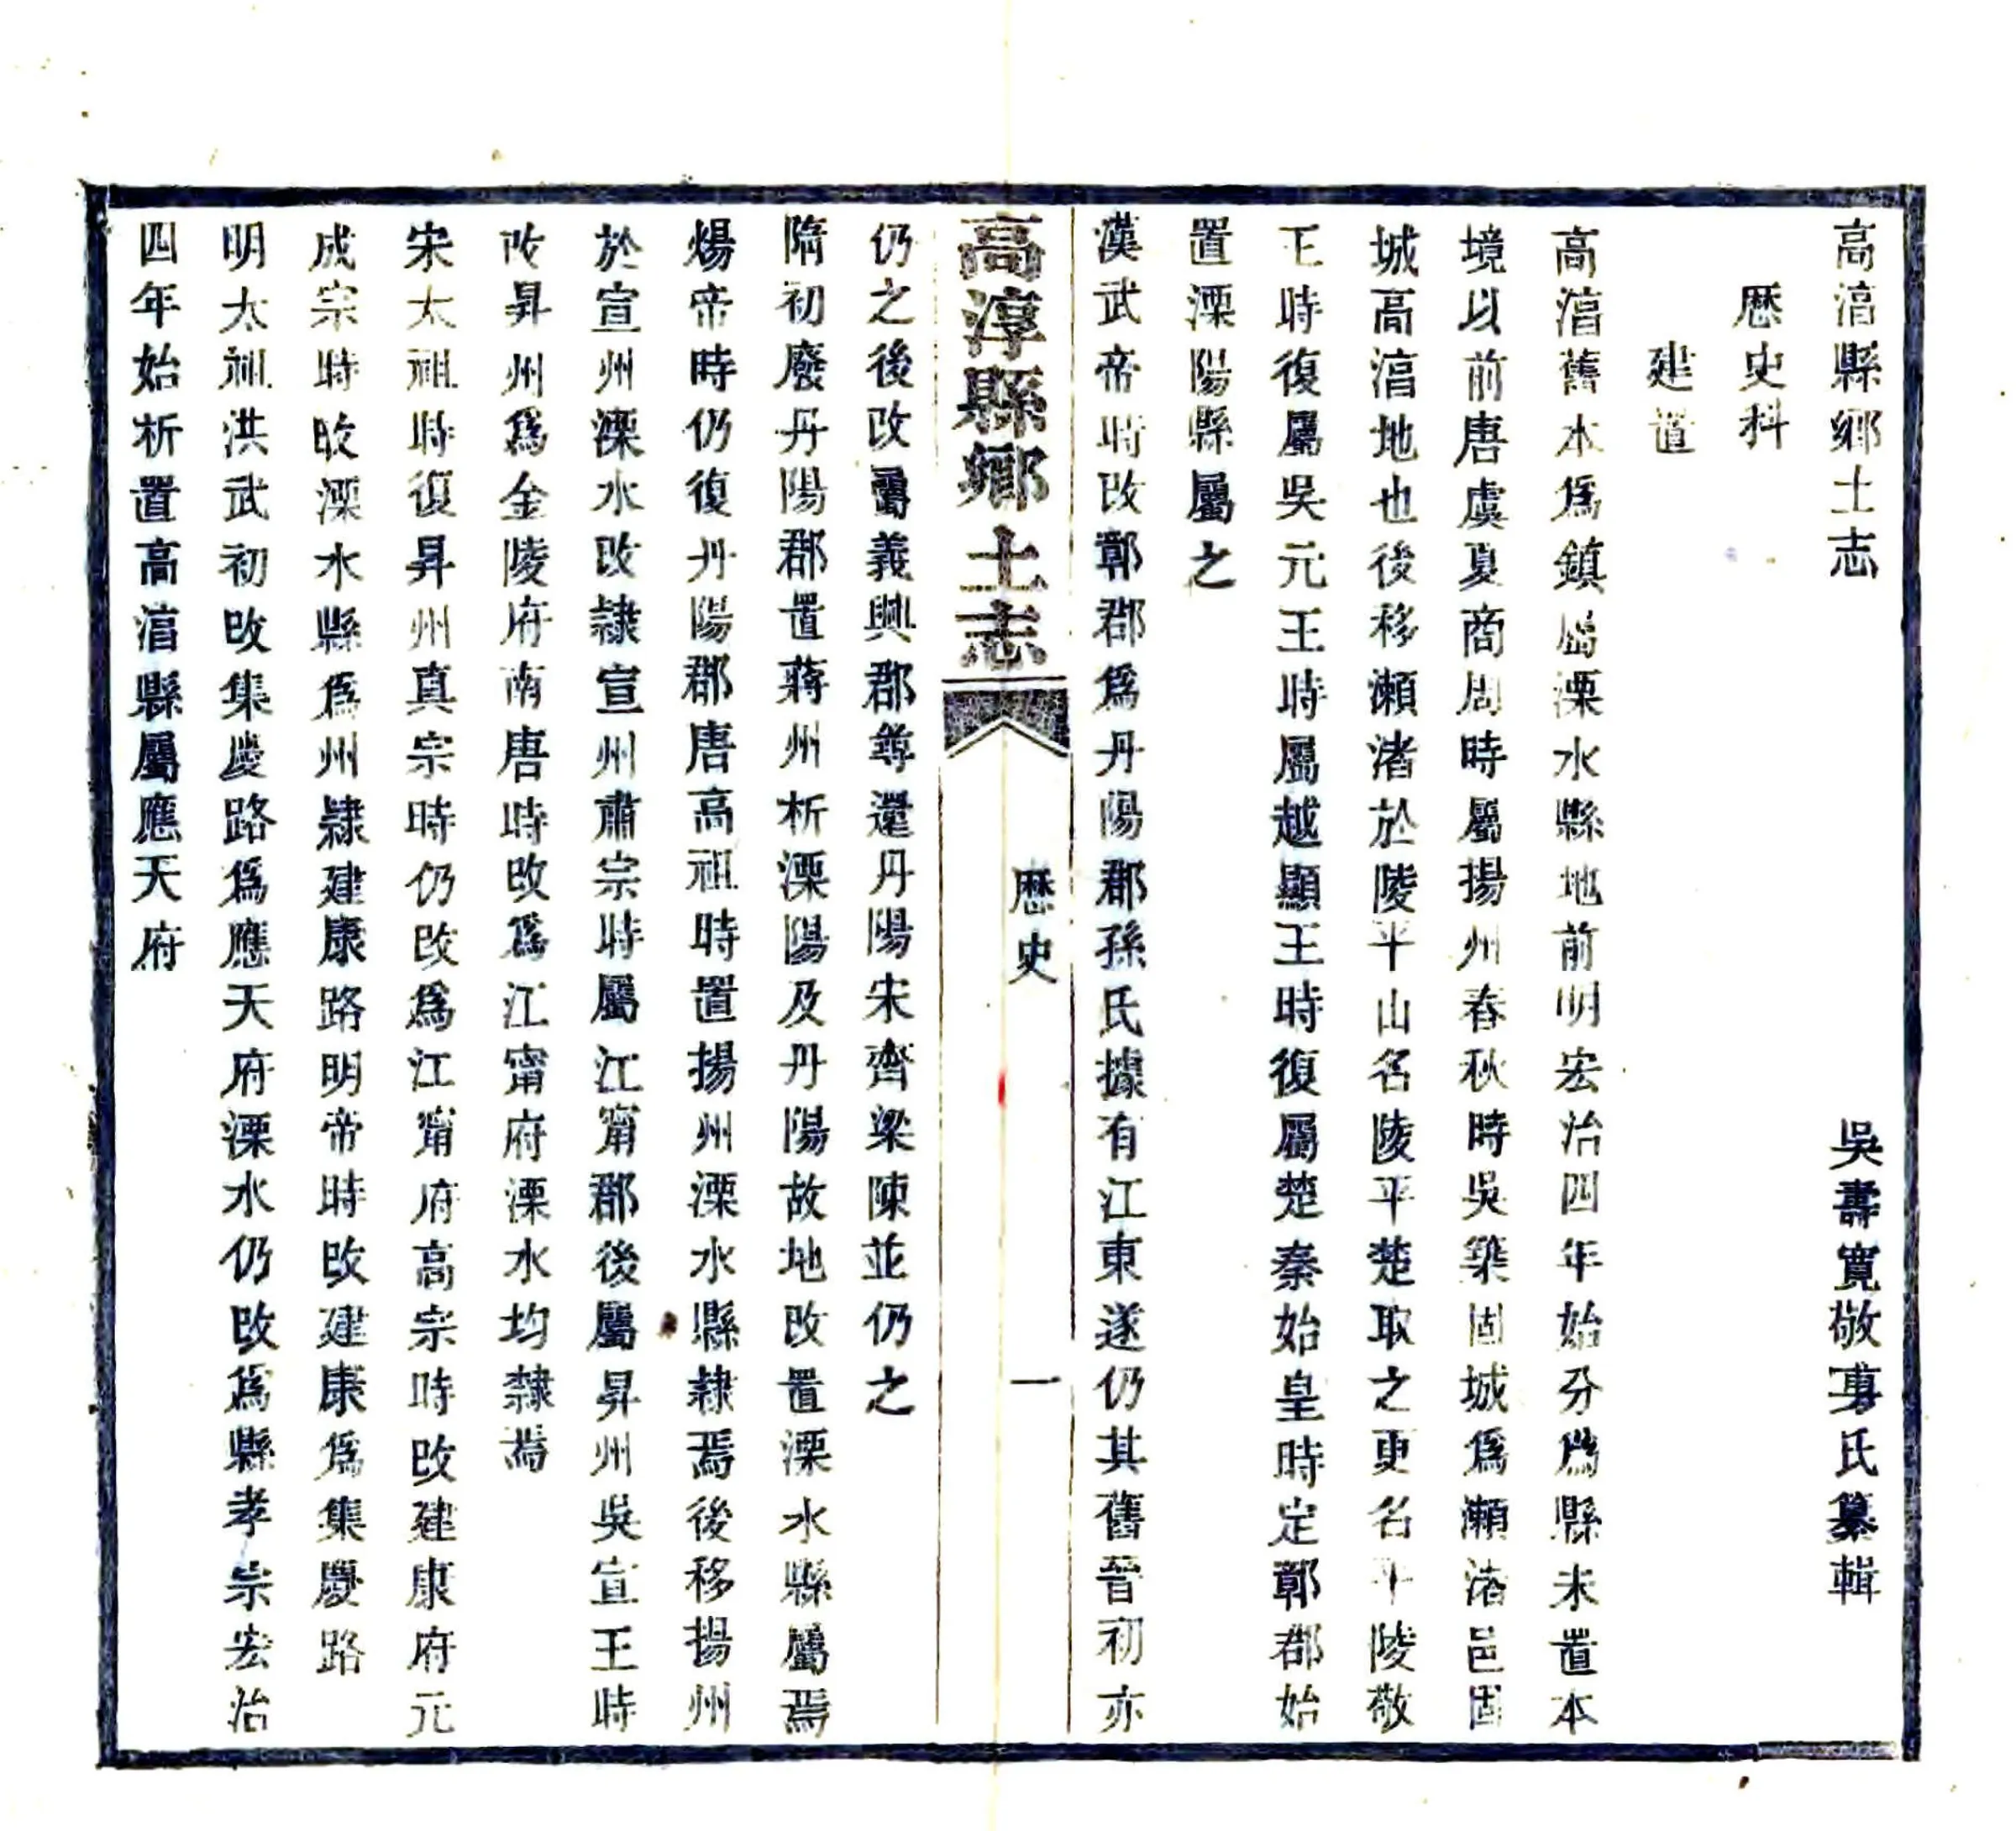 高湻縣鄉土志
吳壽寬敬尃氏纂輯
歷史科
建置
高湻舊本爲鎮屬溧水縣地前明宏治四年始分爲縣未置本
境以前唐虞夏商周時屬揚州春秋時吳築固城爲瀨渚邑固
城高湻地也後移瀨渚於陵平山名陵平楚取之更名平陵敬
王時復屬吳元王時屬越顯王時復屬楚秦始皇時定鄣郡始
置溧陽縣屬之
漢武帝時改鄣郡爲丹陽郡孫氏據有江東遂仍其舊晉初亦
高淳縣鄉土志
歷史
一
仍之後改屬義興郡尋還丹陽宋齊梁陳並仍之
隋初廢丹陽郡置蔣州析溧陽及丹陽故地改置溧水縣屬焉
煬帝時仍復丹陽郡唐高祖時置揚州溧水縣隸焉後移揚州
於宣州溧水改隸宣州肅宗時屬江甯郡後屬昇州吳宣王時
改昇州爲金陵府南唐時改爲江甯府溧水均隸焉
宋太祖時復昇州真宗時仍改爲江甯府高宗時改建康府元
成宗時改溧水縣爲州隸建康路明帝時改建康爲集慶路
明太祖洪武初改集慶路爲應天府溧水仍改爲縣孝宗宏治
四年始析置高湻縣屬應天府